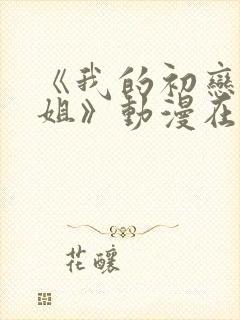 《我的初戀
姐》動漫在
花釀